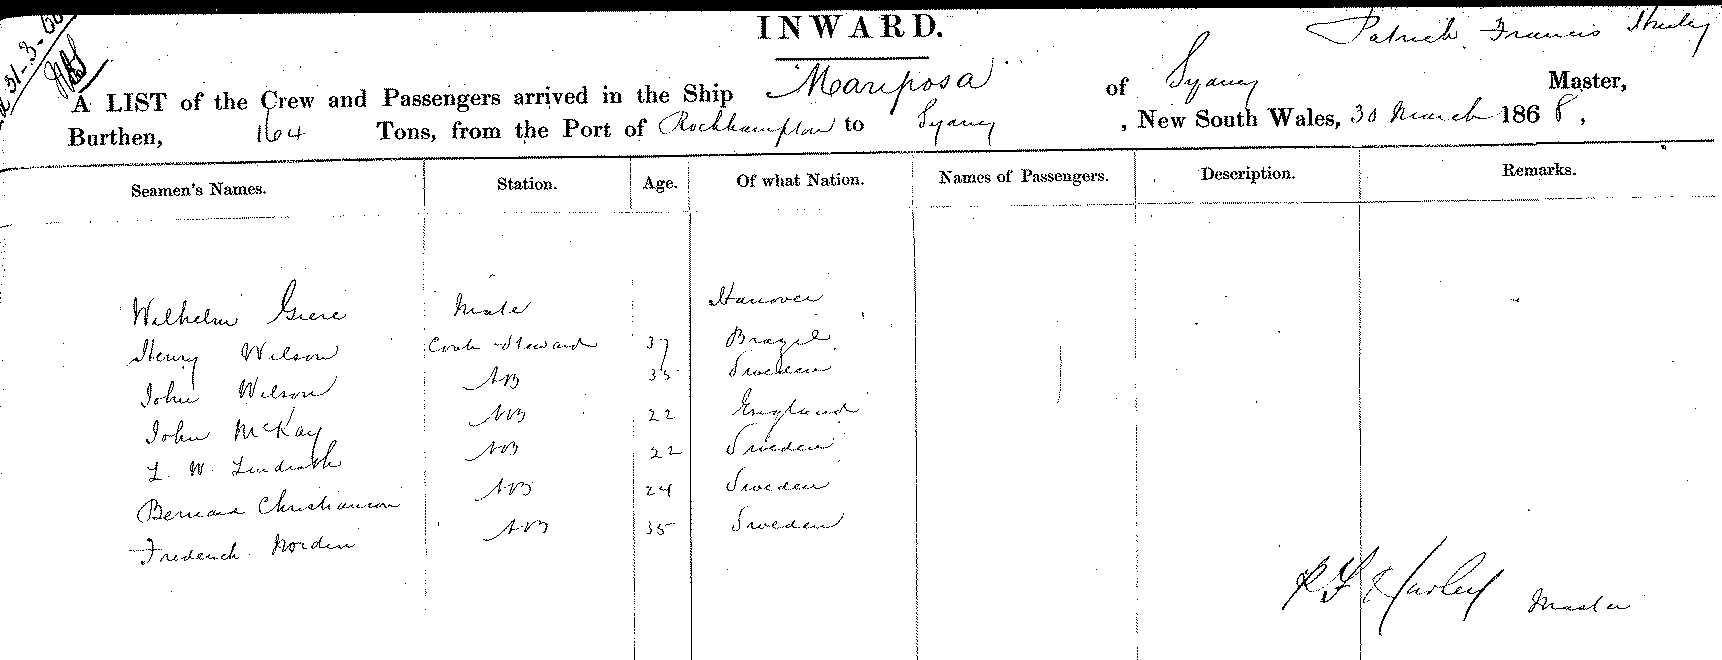 31-3-68
INWARD.
Patrick Francis Hurley
A LIST of the Crew and Passengers arrived in the Ship "Mariposa" of Sydney Master,
Burthen, 164 Tons, from the Port of Rockhampton to Sydney, New South Wales, 30 March 1868,
Seamen's Names. Station. Age. Of what Nation. Names of Passengers. Description. Remarks.
Wilhelm Giere Mate Hanover
Henry Wilson Cook & Steward 37 Brazil
John Wilson AB 35 Sweden
John McKay AB 22 England
L. W. AB 22 Sweden
Bernard Christianson AB 24 Sweden
Frederick Norden AB 35 Sweden
P F Hurley Master